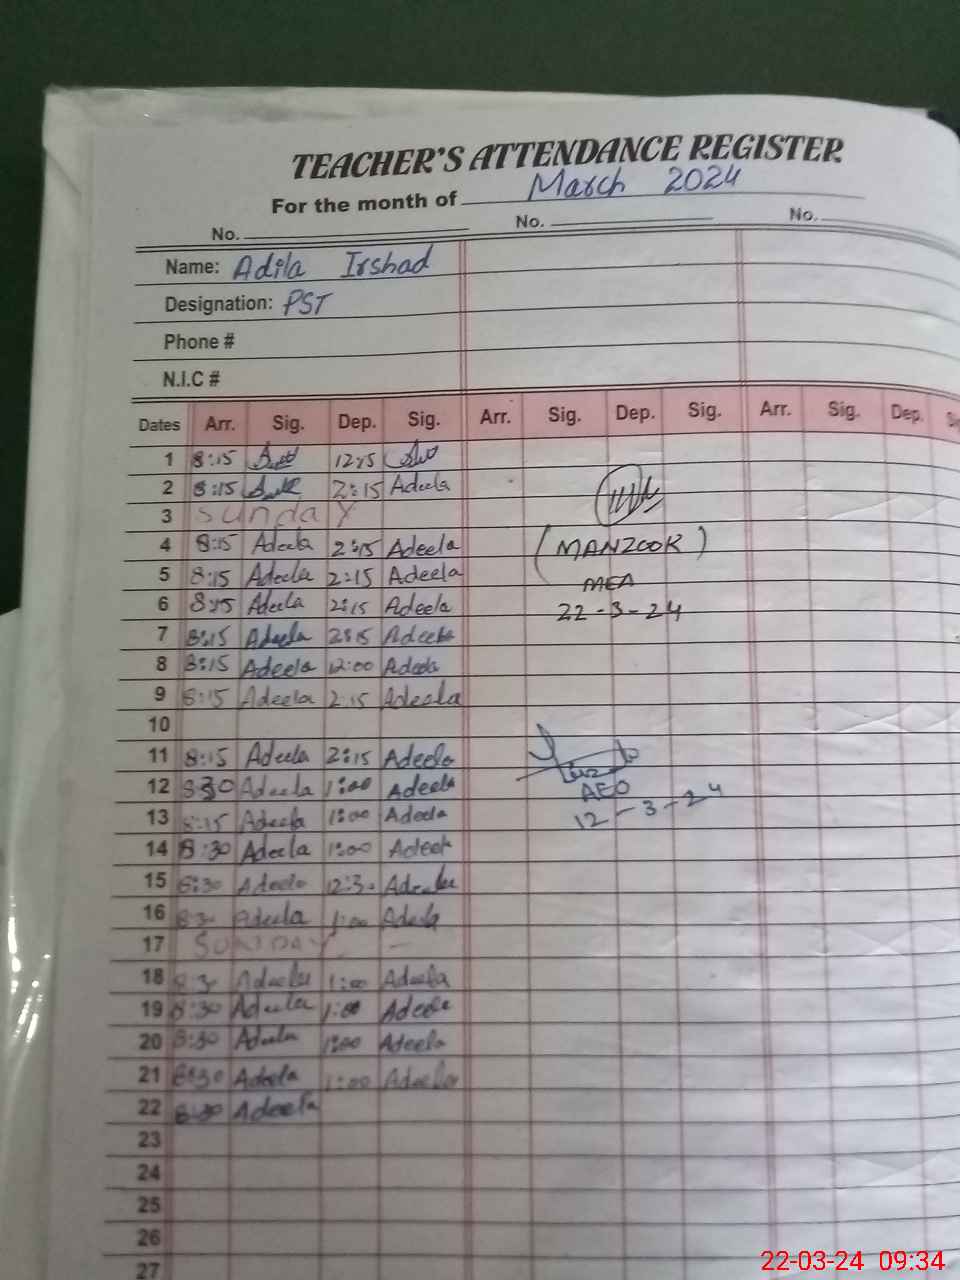 TEACHER'S ATTENDANCE REGISTER
For the month of March 2024
No. No. No.
Name: Adila Irshad
Designation: PST
Phone #
N.I.C #
Dates Arr. Sig. Dep. Sig. Arr. Sig. Dep. Sig. Arr. Sig. Dep.
1 8:15 12:15
2 8:15 2:15 Adeela
3 Sunday
4 8:15 Adeela 2:15 Adeela (MANZOOR)
5 8:15 Adeela 2:15 Adeela MEA
6 8:15 Adeela 2:15 Adeela 22-3-24
7 8:15 Adeela 2:15 Adeela
8 8:15 Adeela 12:00 Adeela
9 8:15 Adeela 2:15 Adeela
10
11 8:15 Adeela 2:15 Adeela
12 8:30 Adeela 1:00 Adeela AEO
13 8:15 Adeela 1:00 Adeela 12-3-24
14 8:30 Adeela 1:00 Adeela
15 8:30 Adeela 12:30 Adeela
16 8:30 Adeela 1:00 Adeela
17 SUNDAY -
18 8:30 Adeela 1:00 Adeela
19 8:30 Adeela 1:00 Adeela
20 8:30 Adeela 1:00 Adeela
21 8:30 Adeela 1:00 Adeela
22 8:30 Adeela
23
24
25
26
27
22-03-24 09:34